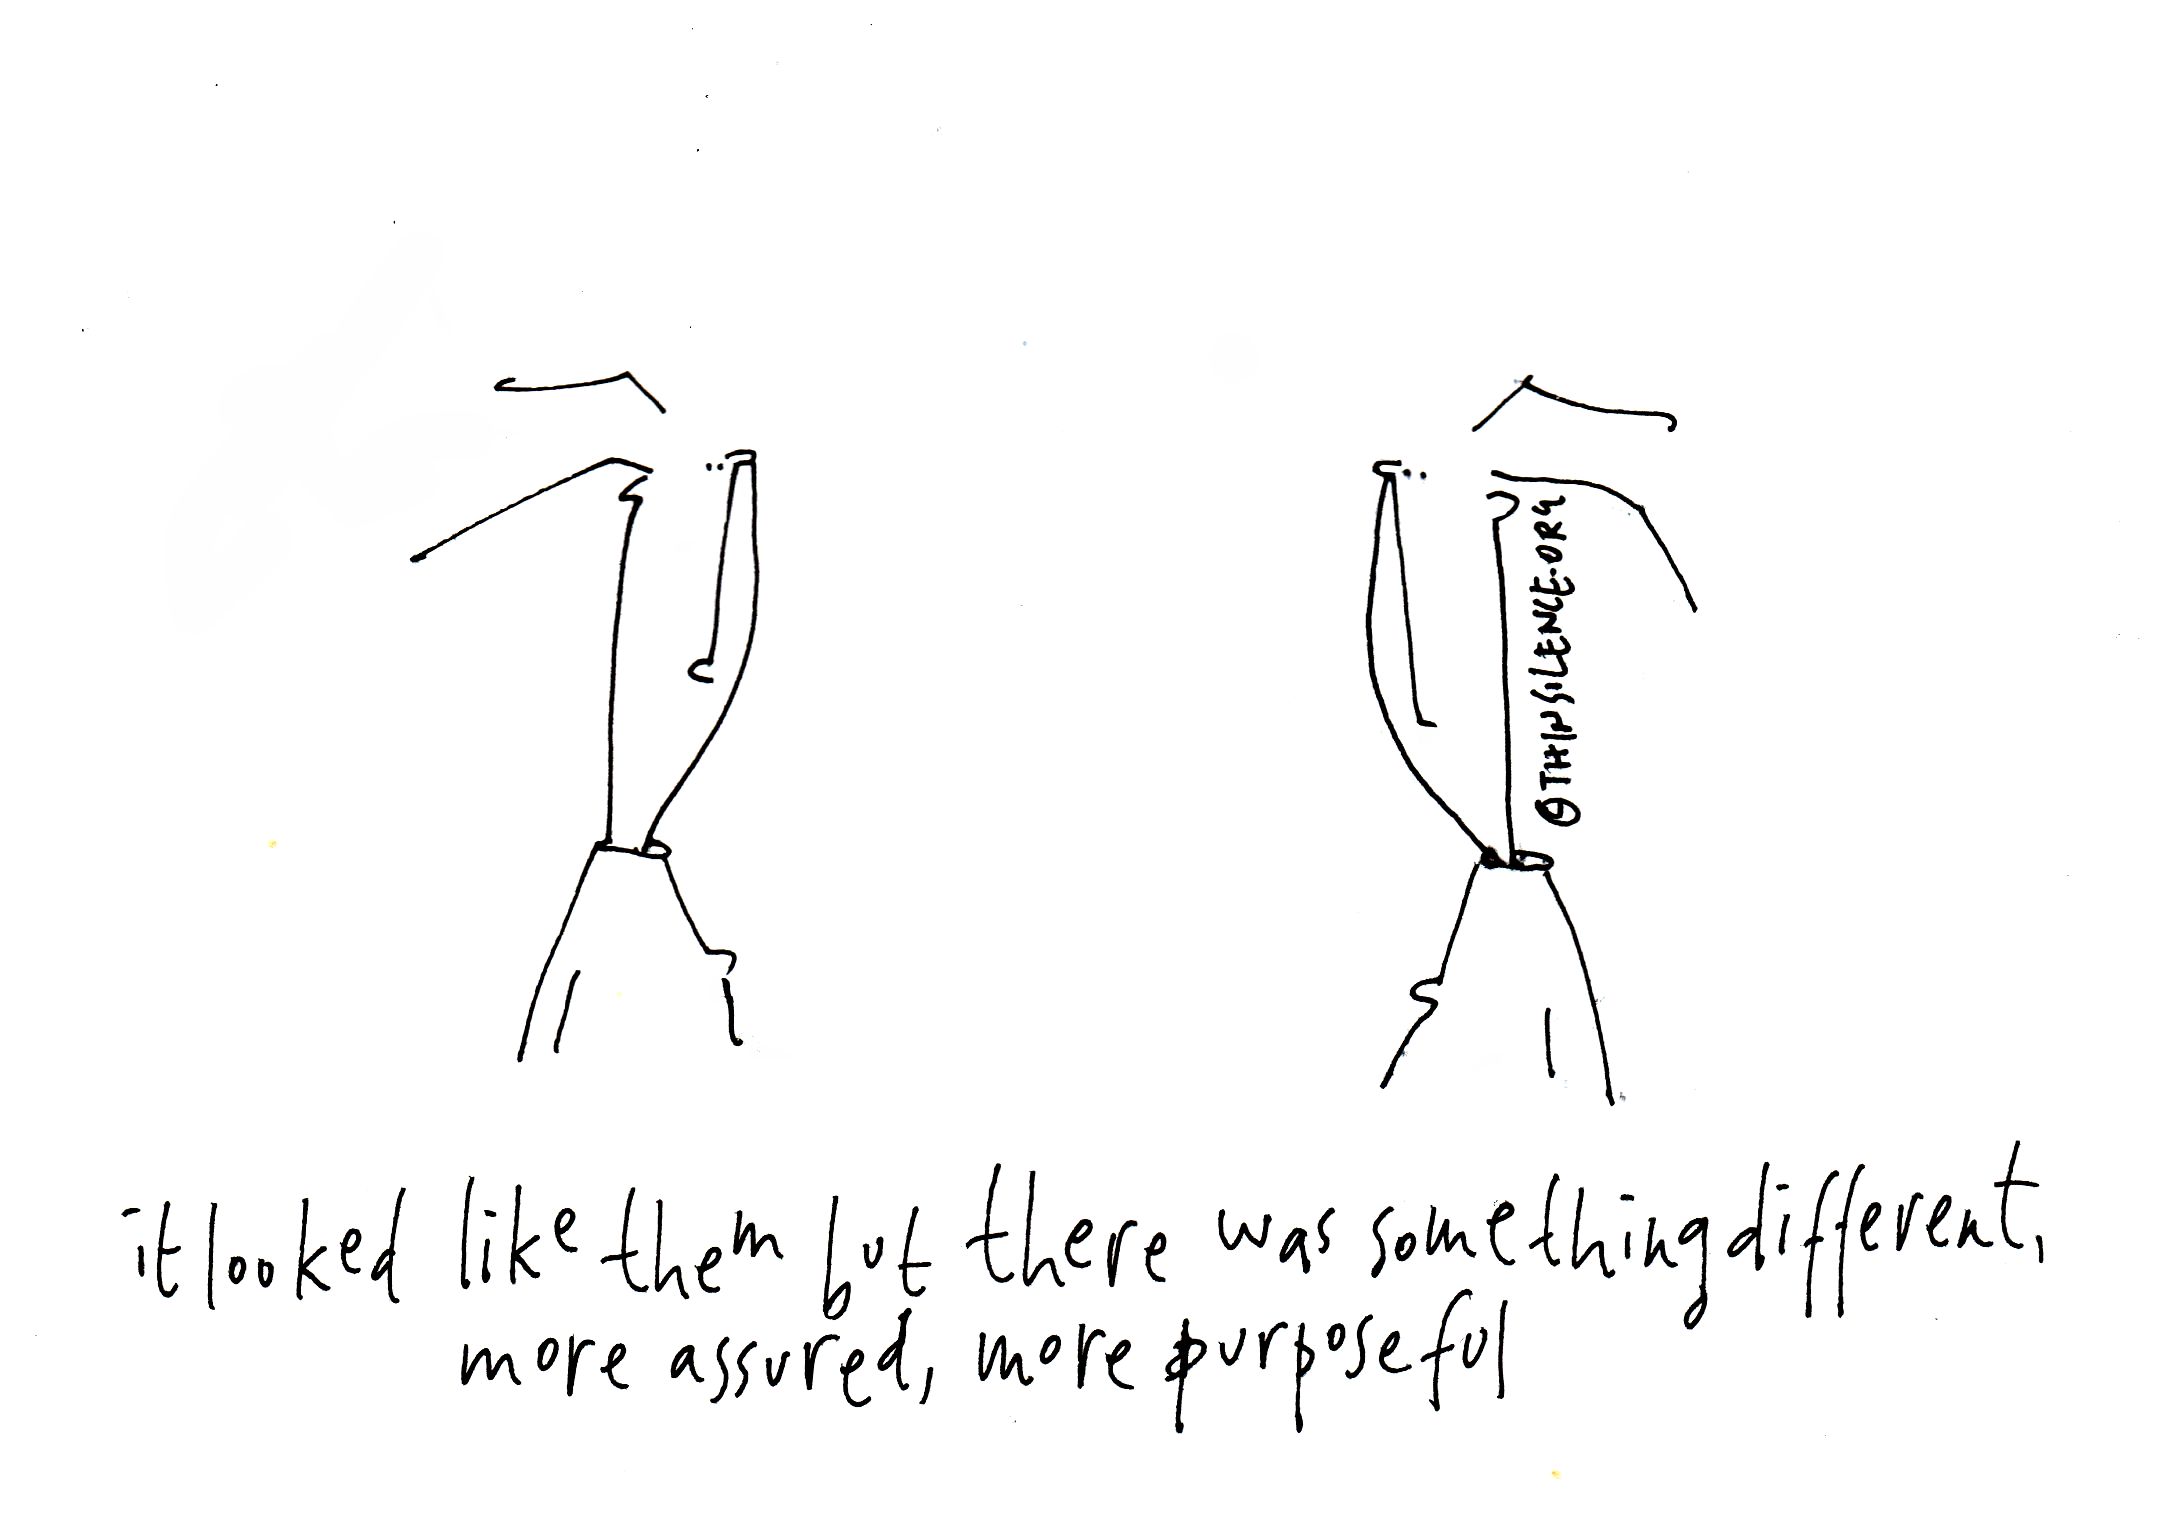 ©THINSILENCE.ORG
it looked like them but there was something different,
more assured, more purposeful